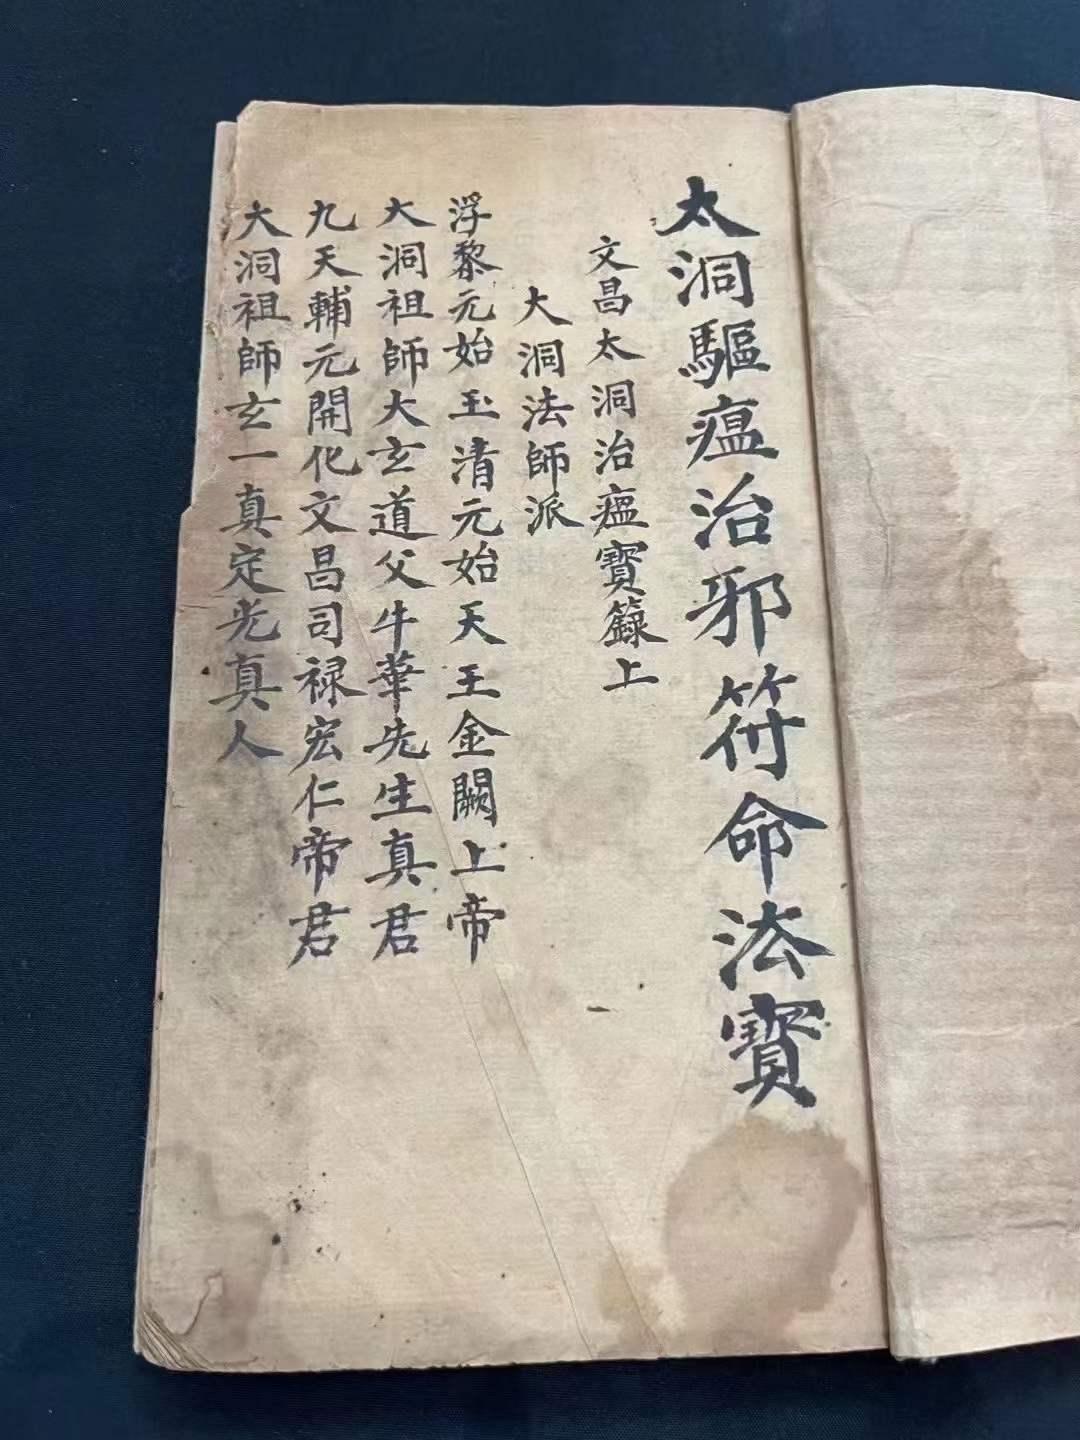 太洞驅瘟治邪符命法寶
文昌太洞治瘟寶籙上
大洞法師派
浮黎元始玉清元始天王金闕上帝
大洞祖師大玄道父牛華先生真君
九天輔元開化文昌司禄宏仁帝君
大洞祖師玄一真定光真人